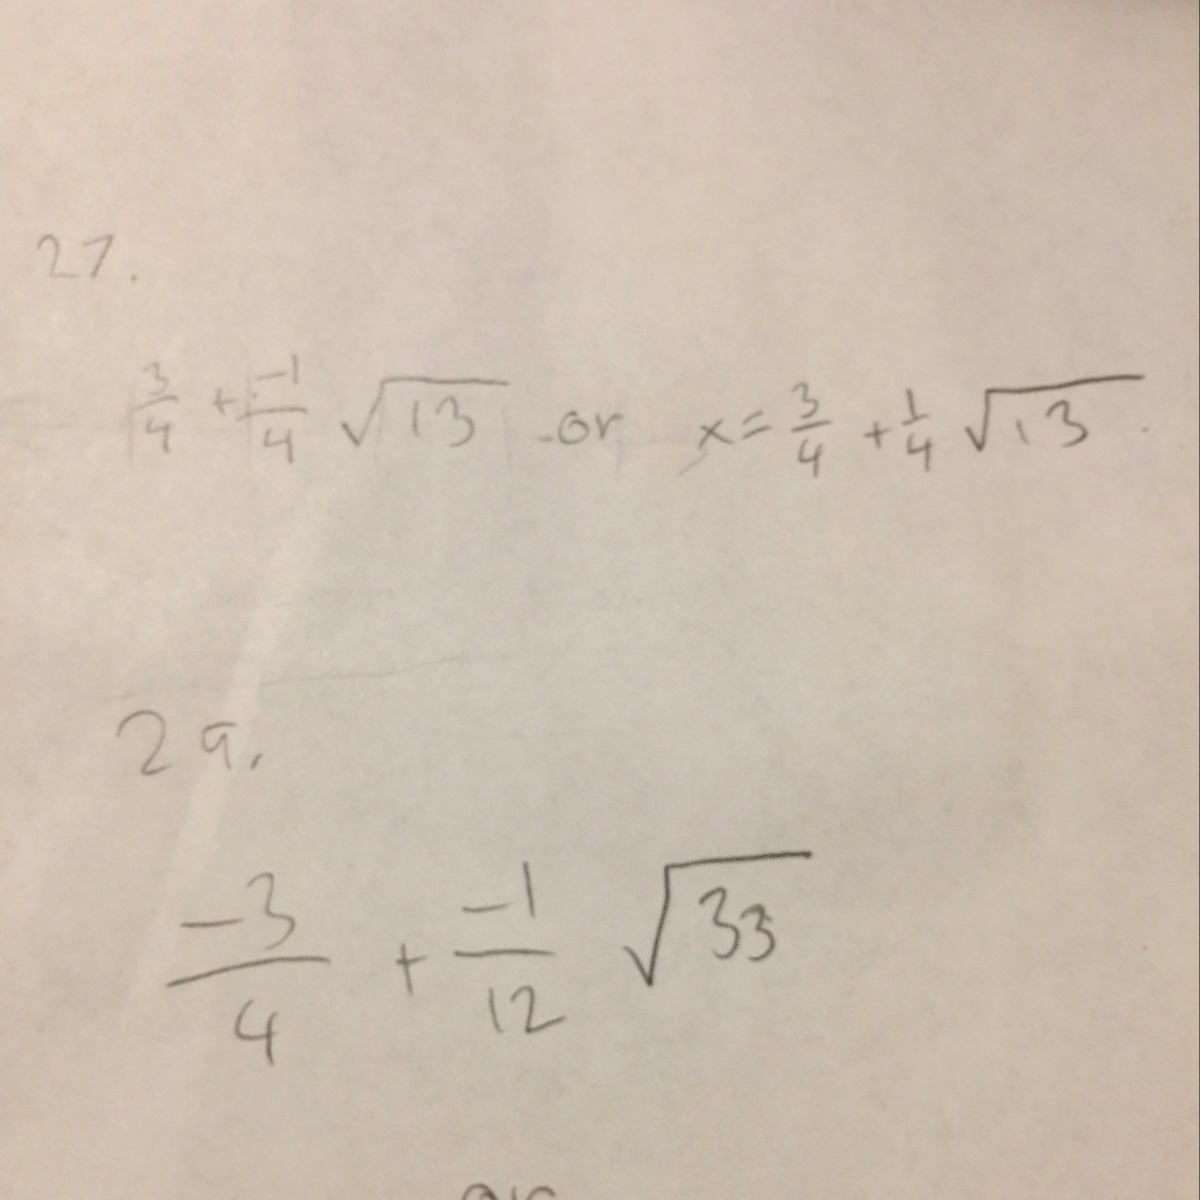 27.
3/4 + -1/4 √13 or x = 3/4 + 1/4 √13
29.
-3/4 + -1/12 √33
or